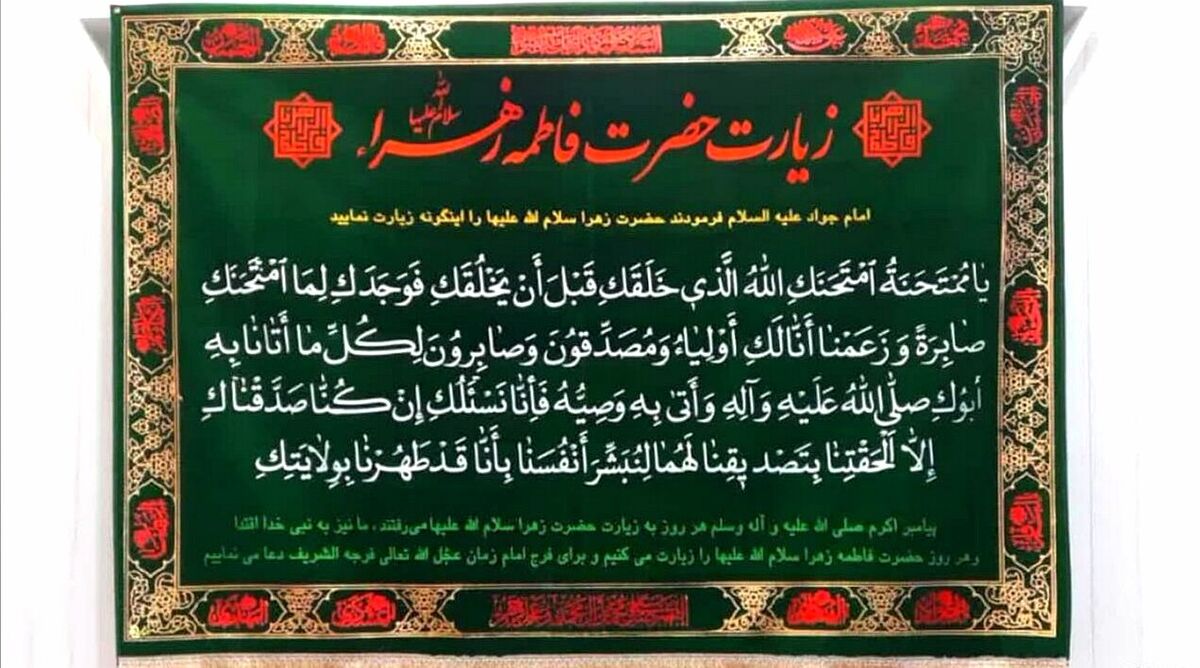 زیارت حضرت فاطمه زهراء سلام الله علیها
امام جواد علیه السلام فرمودند حضرت زهرا سلام الله علیها را اینگونه زیارت نمایید
يا مُمْتَحَنَةُ ٱمْتَحَنَكِ اللهُ الَّذي خَلَقَكِ قَبْلَ أَنْ يَخْلُقَكِ فَوَجَدَكِ لِمَا ٱمْتَحَنَكِ
صابِرَةً وَ زَعَمْنا أَنّا لَكِ أَوْلِياءُ وَ مُصَدِّقُونَ وَ صابِرُونَ لِكُلِّ ما أَتانا بِهِ
أَبُوكِ صلَّی اللهُ عَلَيْهِ وَ آلِهِ وَ أَتیٰ بِهِ وَصِيُّهُ فَأِنّا نَسْئَلُكِ إِنْ كُنّا صَدَّقْناكِ
إِلّا أَلْحَقْتِنا بِتَصْديقِنا لَهُما لِنُبَشِّرَ أَنْفُسَنا بِأَنّا قَدْ طَهُرْنا بِوِلايَتِكِ
پیامبر اکرم صلی الله علیه و آله وسلم هر روز به زیارت حضرت زهرا سلام الله علیها می‌رفتند، ما نیز به نبی خدا اقتدا
وهر روز حضرت فاطمه زهرا سلام الله علیها را زیارت می کنیم و برای فرج امام زمان عجّل الله تعالی فرجه الشریف دعا می نماییم